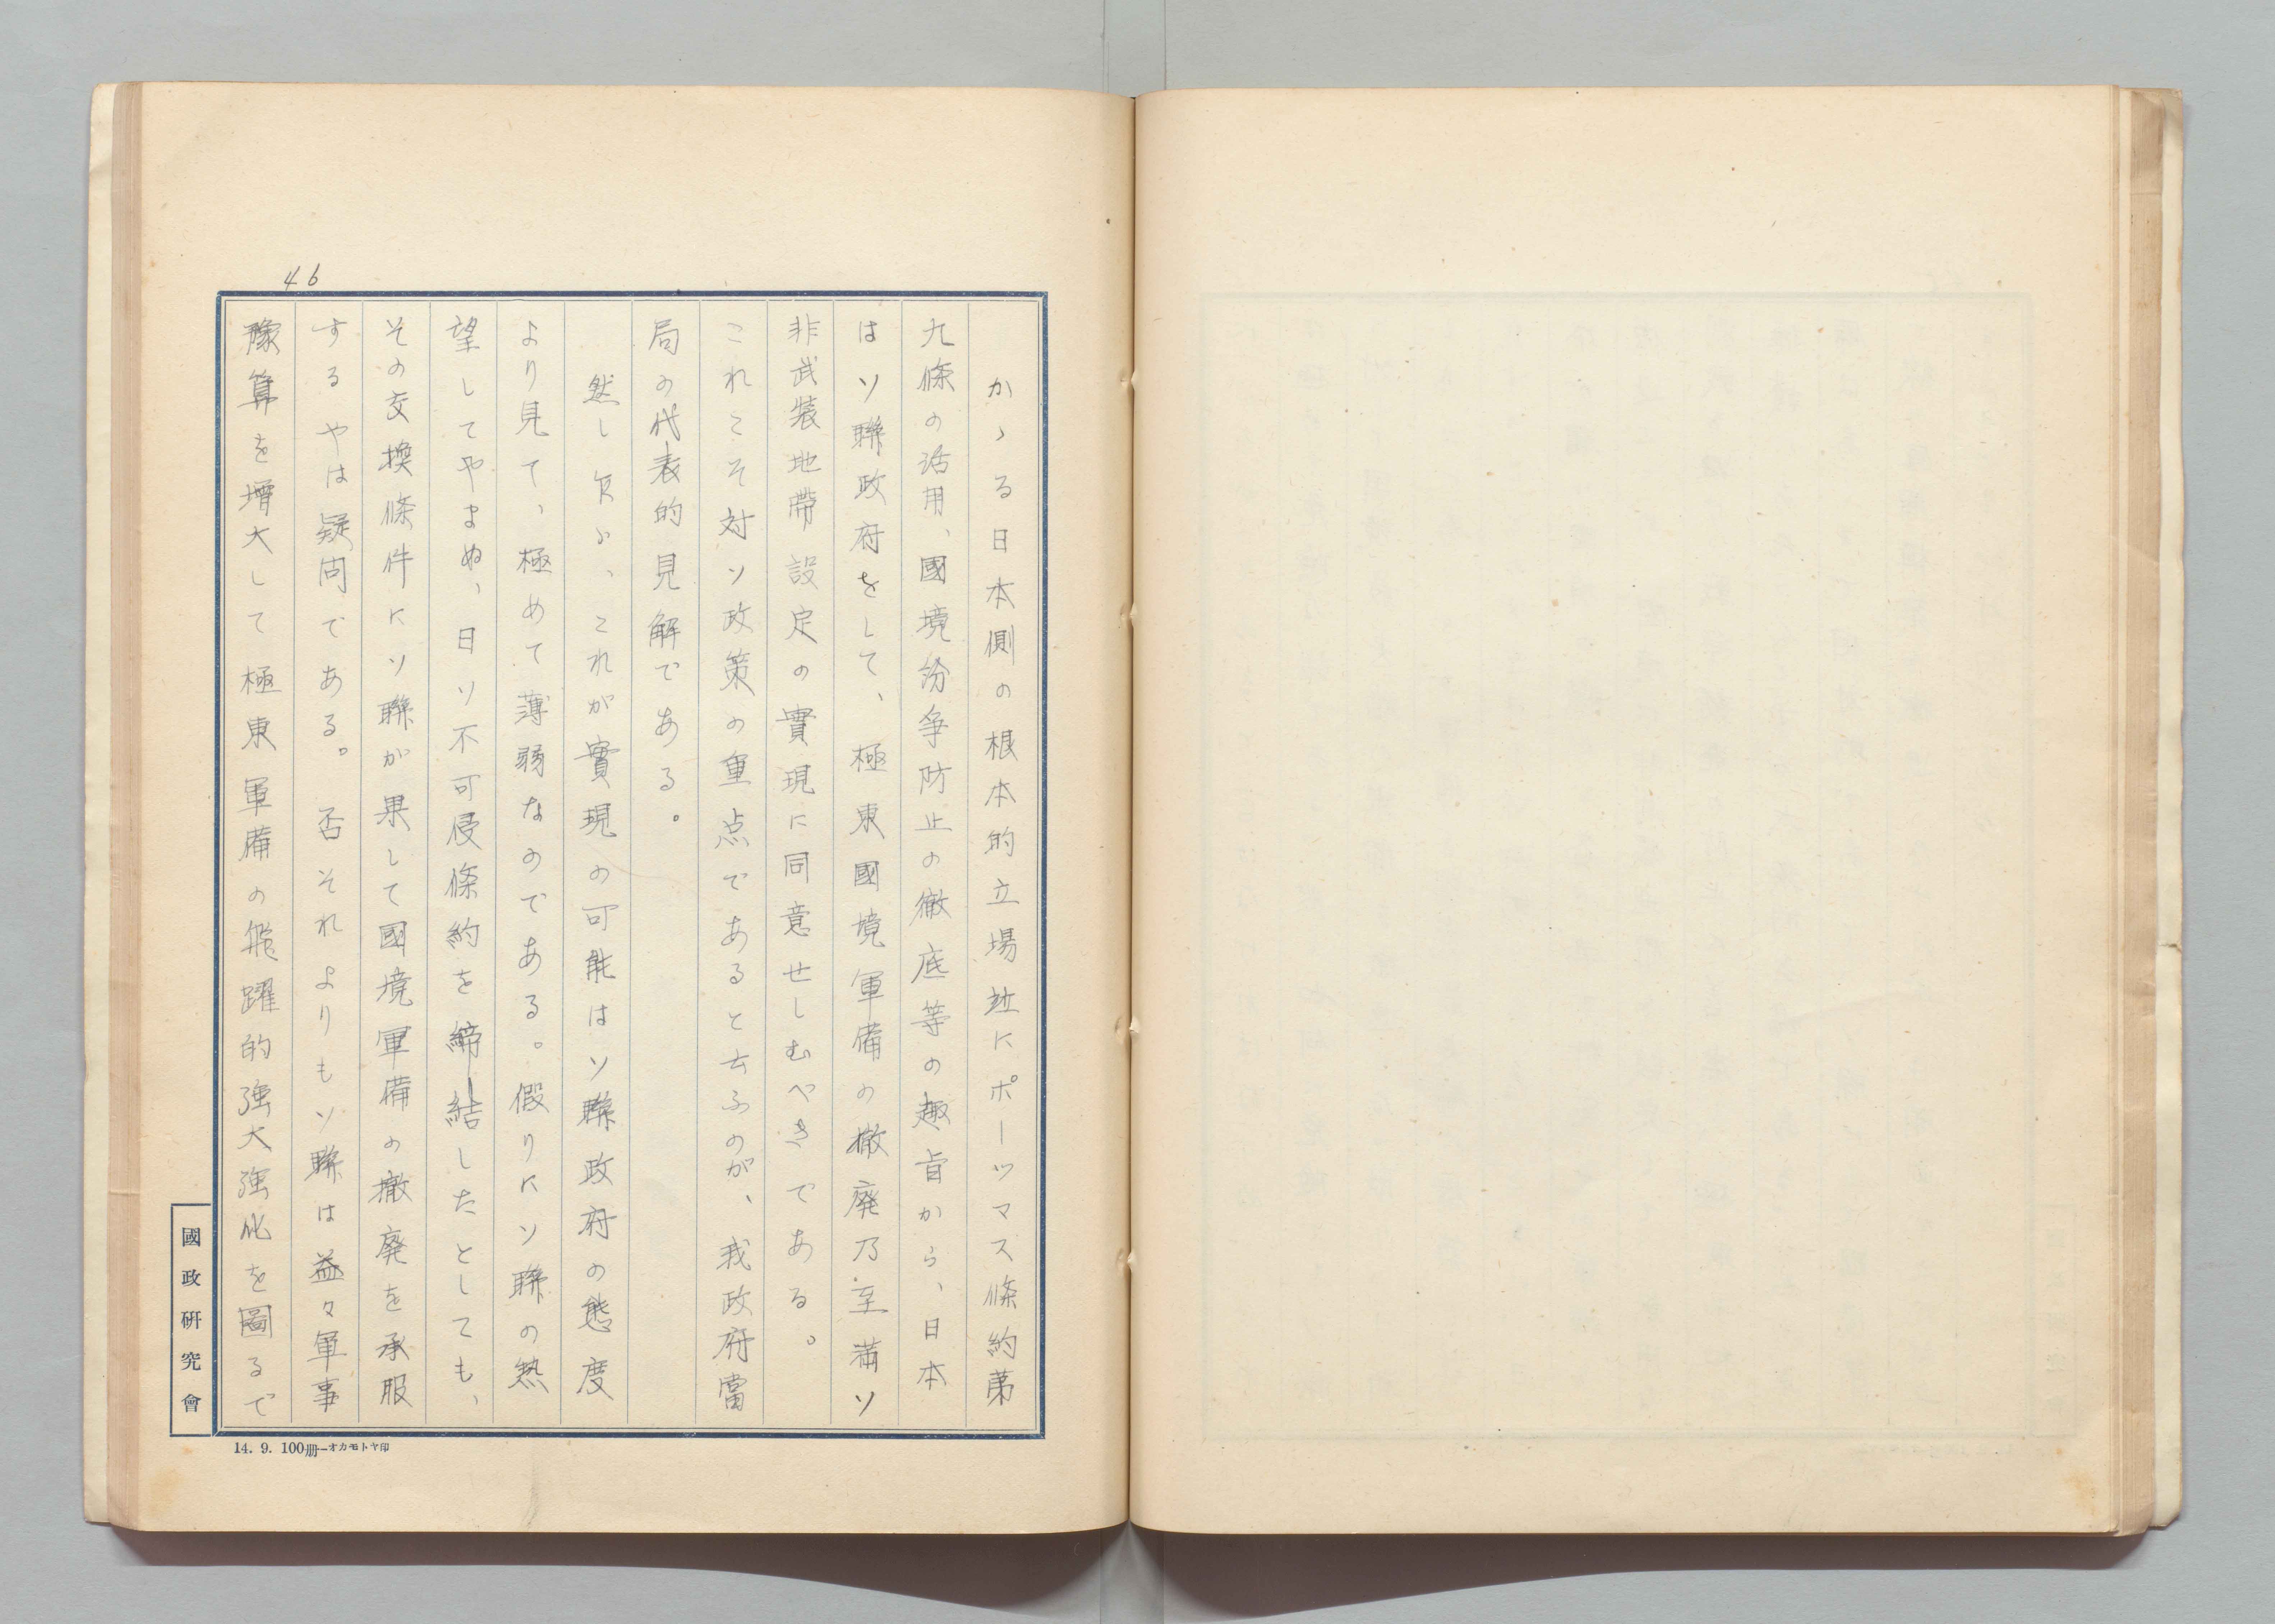 46
かゝる日本側の根本的立場竝にポーツマス條約第
九條の活用、國境紛争防止の徹底等の趣旨から、日本
はソ聯政府をして、極東國境軍備の撤廃乃至満ソ
非武装地帶設定の實現に同意せしむべきである。
これこそ対ソ政策の重点であると云ふのが、我政府當
局の代表的見解である。
然し乍ら、これが實現の可能はソ聯政府の態度
より見て、極めて薄弱なのである。假りにソ聯の熱
望してやまぬ、日ソ不可侵條約を締結したとしても、
その交換條件にソ聯が果して國境軍備の撤廃を承服
するやは疑問である。否それよりもソ聯は益々軍事
豫算を増大して極東軍備の飛躍的強大強化を圖るで
國政研究會
14. 9. 100册—オカモトヤ印